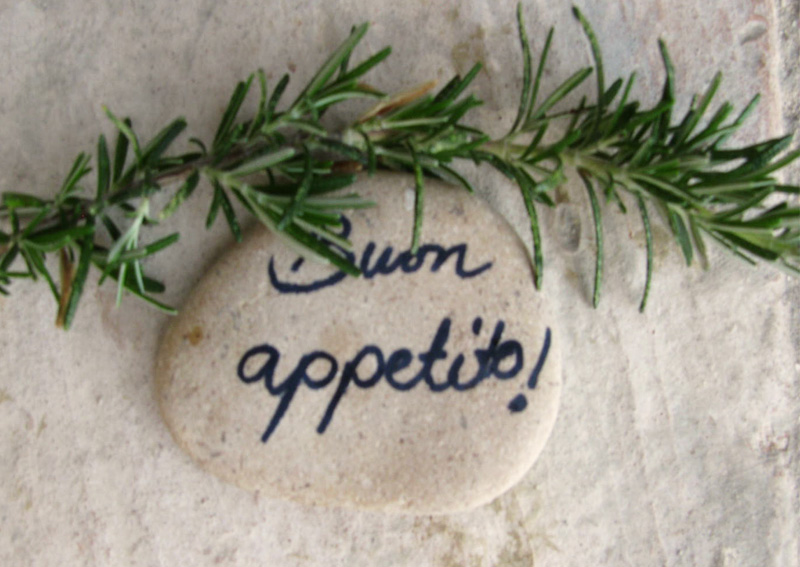 Buon
appetito!